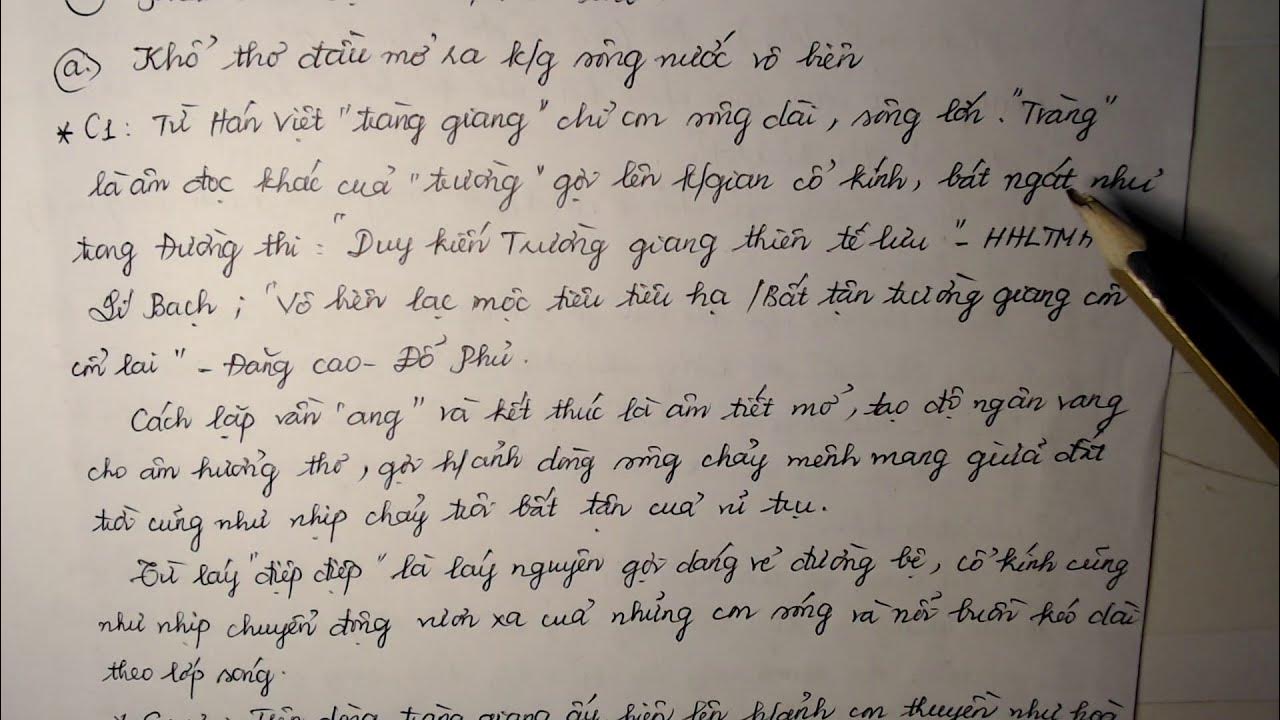 a.) Khổ thơ đầu mở ra k/g sông nước vô biên
* C1: Từ Hán Việt "tràng giang" chỉ con sông dài, sông lớn. "Tràng"
là âm đọc khác của "trường" gợi lên k/gian cổ kính, bát ngát như
trong Đường thi: "Duy kiến Trường giang thiên tế lưu" - HHLTMH
Lí Bạch; "Vô biên lạc mộc tiêu tiêu hạ / Bất tận trường giang cổn
cổn lai" - Đăng cao - Đỗ Phủ.
Cách lặp vần "ang" và kết thúc là âm tiết mở, tạo độ ngân vang
cho âm hưởng thơ, gợi h/ảnh dòng sông chảy mênh mang giữa đất
trời cũng như nhịp chảy trôi bất tận của vũ trụ.
Từ láy "điệp điệp" là láy nguyên gợi dáng vẻ đường bệ, cổ kính cũng
như nhịp chuyển động vươn xa của những con sóng và nỗi buồn kéo dài
theo lớp sóng.
Trên dòng tràng giang ấy hiện lên h/ảnh con thuyền như hoà